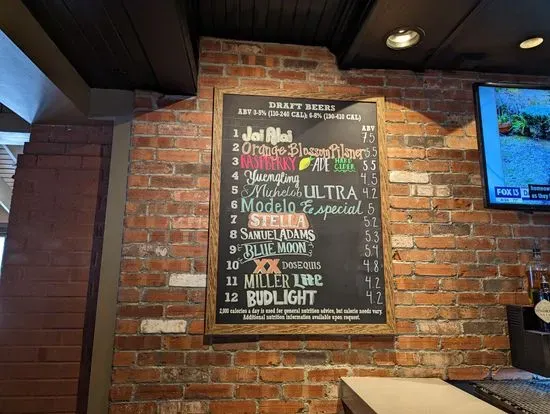 DRAFT BEERS
ABV 3-5% (110-240 CAL); 6-8% (190-410 CAL)
ABV
1 Jai Alai 7.5
2 Orange Blossom Pilsner 5.5
3 RASPBERRY ADE HARD CIDER 5.5
4 Yuengling 4.5
5 Michelob ULTRA 4.2
6 Modelo Especial 5
7 STELLA 5.2
8 SAMUEL ADAMS 5.3
9 BLUE MOON 5.4
10 XX DOSEQUIS 4.8
11 MILLER LITE 4.2
12 BUDLIGHT 4.2
2,000 calories a day is used for general nutrition advice, but calorie needs vary.
Additional nutrition information available upon request.
FOX 13